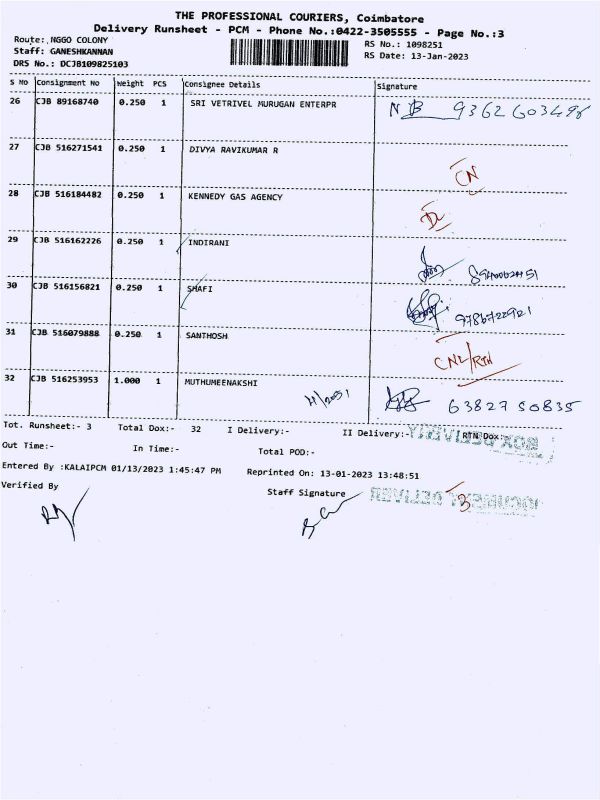 THE PROFESSIONAL COURIERS, Coimbatore
Delivery Runsheet - PCM - Phone No.:0422-3505555 - Page No.:3
Route: NGGO COLONY
RS No.: 1098251
Staff: GANESHKANNAN
RS Date: 13-Jan-2023
DRS No.: DCJB109825103
S No Consignment No Weight PCS Consignee Details Signature
26 CJB 89168740 0.250 1 SRI VETRIVEL MURUGAN ENTERPR NB 9362603498
27 CJB 516271541 0.250 1 DIVYA RAVIKUMAR R CN
28 CJB 516184482 0.250 1 KENNEDY GAS AGENCY DL
29 CJB 516162226 0.250 1 INDIRANI
30 CJB 516156821 0.250 1 SHAFI
31 CJB 516079888 0.250 1 SANTHOSH
32 CJB 516253953 1.000 1 MUTHUMEENAKSHI 6382750835
Tot. Runsheet:- 3 Total Dox:- 32 I Delivery:- II Delivery:- RTN Dox:-
Out Time:- In Time:- Total POD:-
Entered By :KALAIPCM 01/13/2023 1:45:47 PM Reprinted On: 13-01-2023 13:48:51
Verified By Staff Signature
3